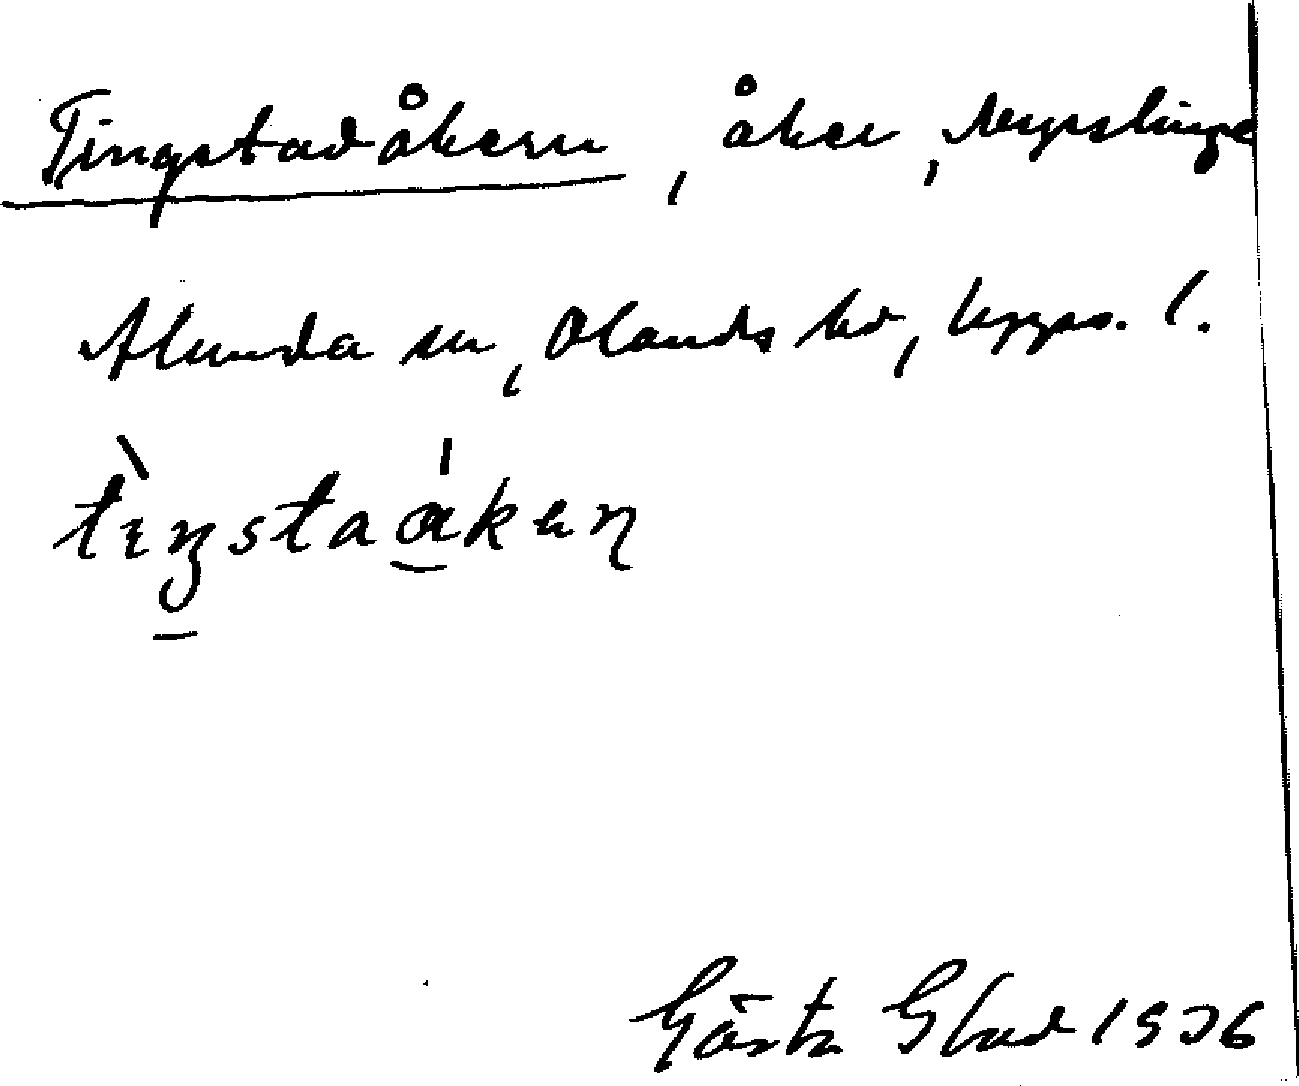 Tingstadåkern, åker, Nyslinge
Alunda sn, Olands hd, Upps. l.
tìŋstaákeɳ
Gösta Glad 1936